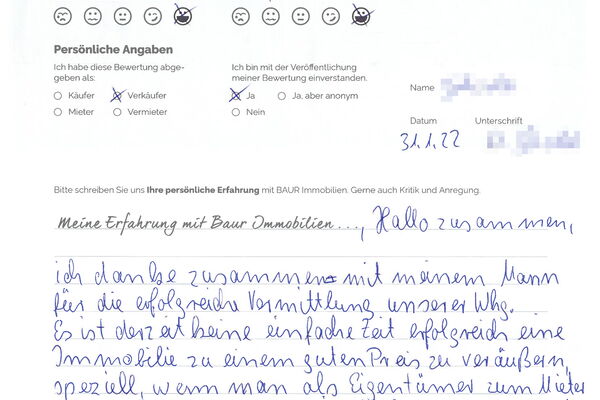 Persönliche Angaben
Ich habe diese Bewertung abge-
geben als:
Käufer Verkäufer
Mieter Vermieter
Ich bin mit der Veröffentlichung
meiner Bewertung einverstanden.
Ja Ja, aber anonym
Nein
Name
Datum Unterschrift
31.1.22
Bitte schreiben Sie uns Ihre persönliche Erfahrung mit BAUR Immobilien. Gerne auch Kritik und Anregung.
Meine Erfahrung mit Baur Immobilien ..., Hallo zusammen,
ich danke zusammen mit meinem Mann
für die erfolgreiche Vermittlung unserer Whg.
Es ist derzeit keine einfache Zeit erfolgreich eine
Immobilie zu einem guten Preis zu veräußern,
speziell, wenn man als Eigentümer zum Mieter